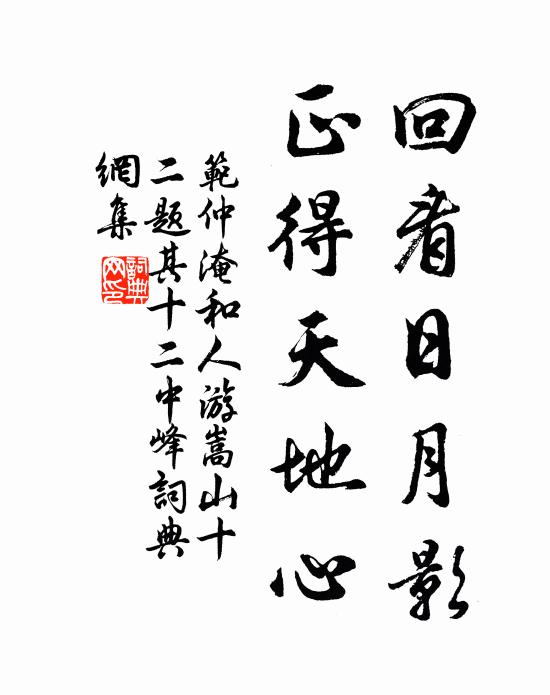 回看日月影
正得天地心
範仲淹和人游嵩山十
二题其十二中峰詞典
網集
詞典網印